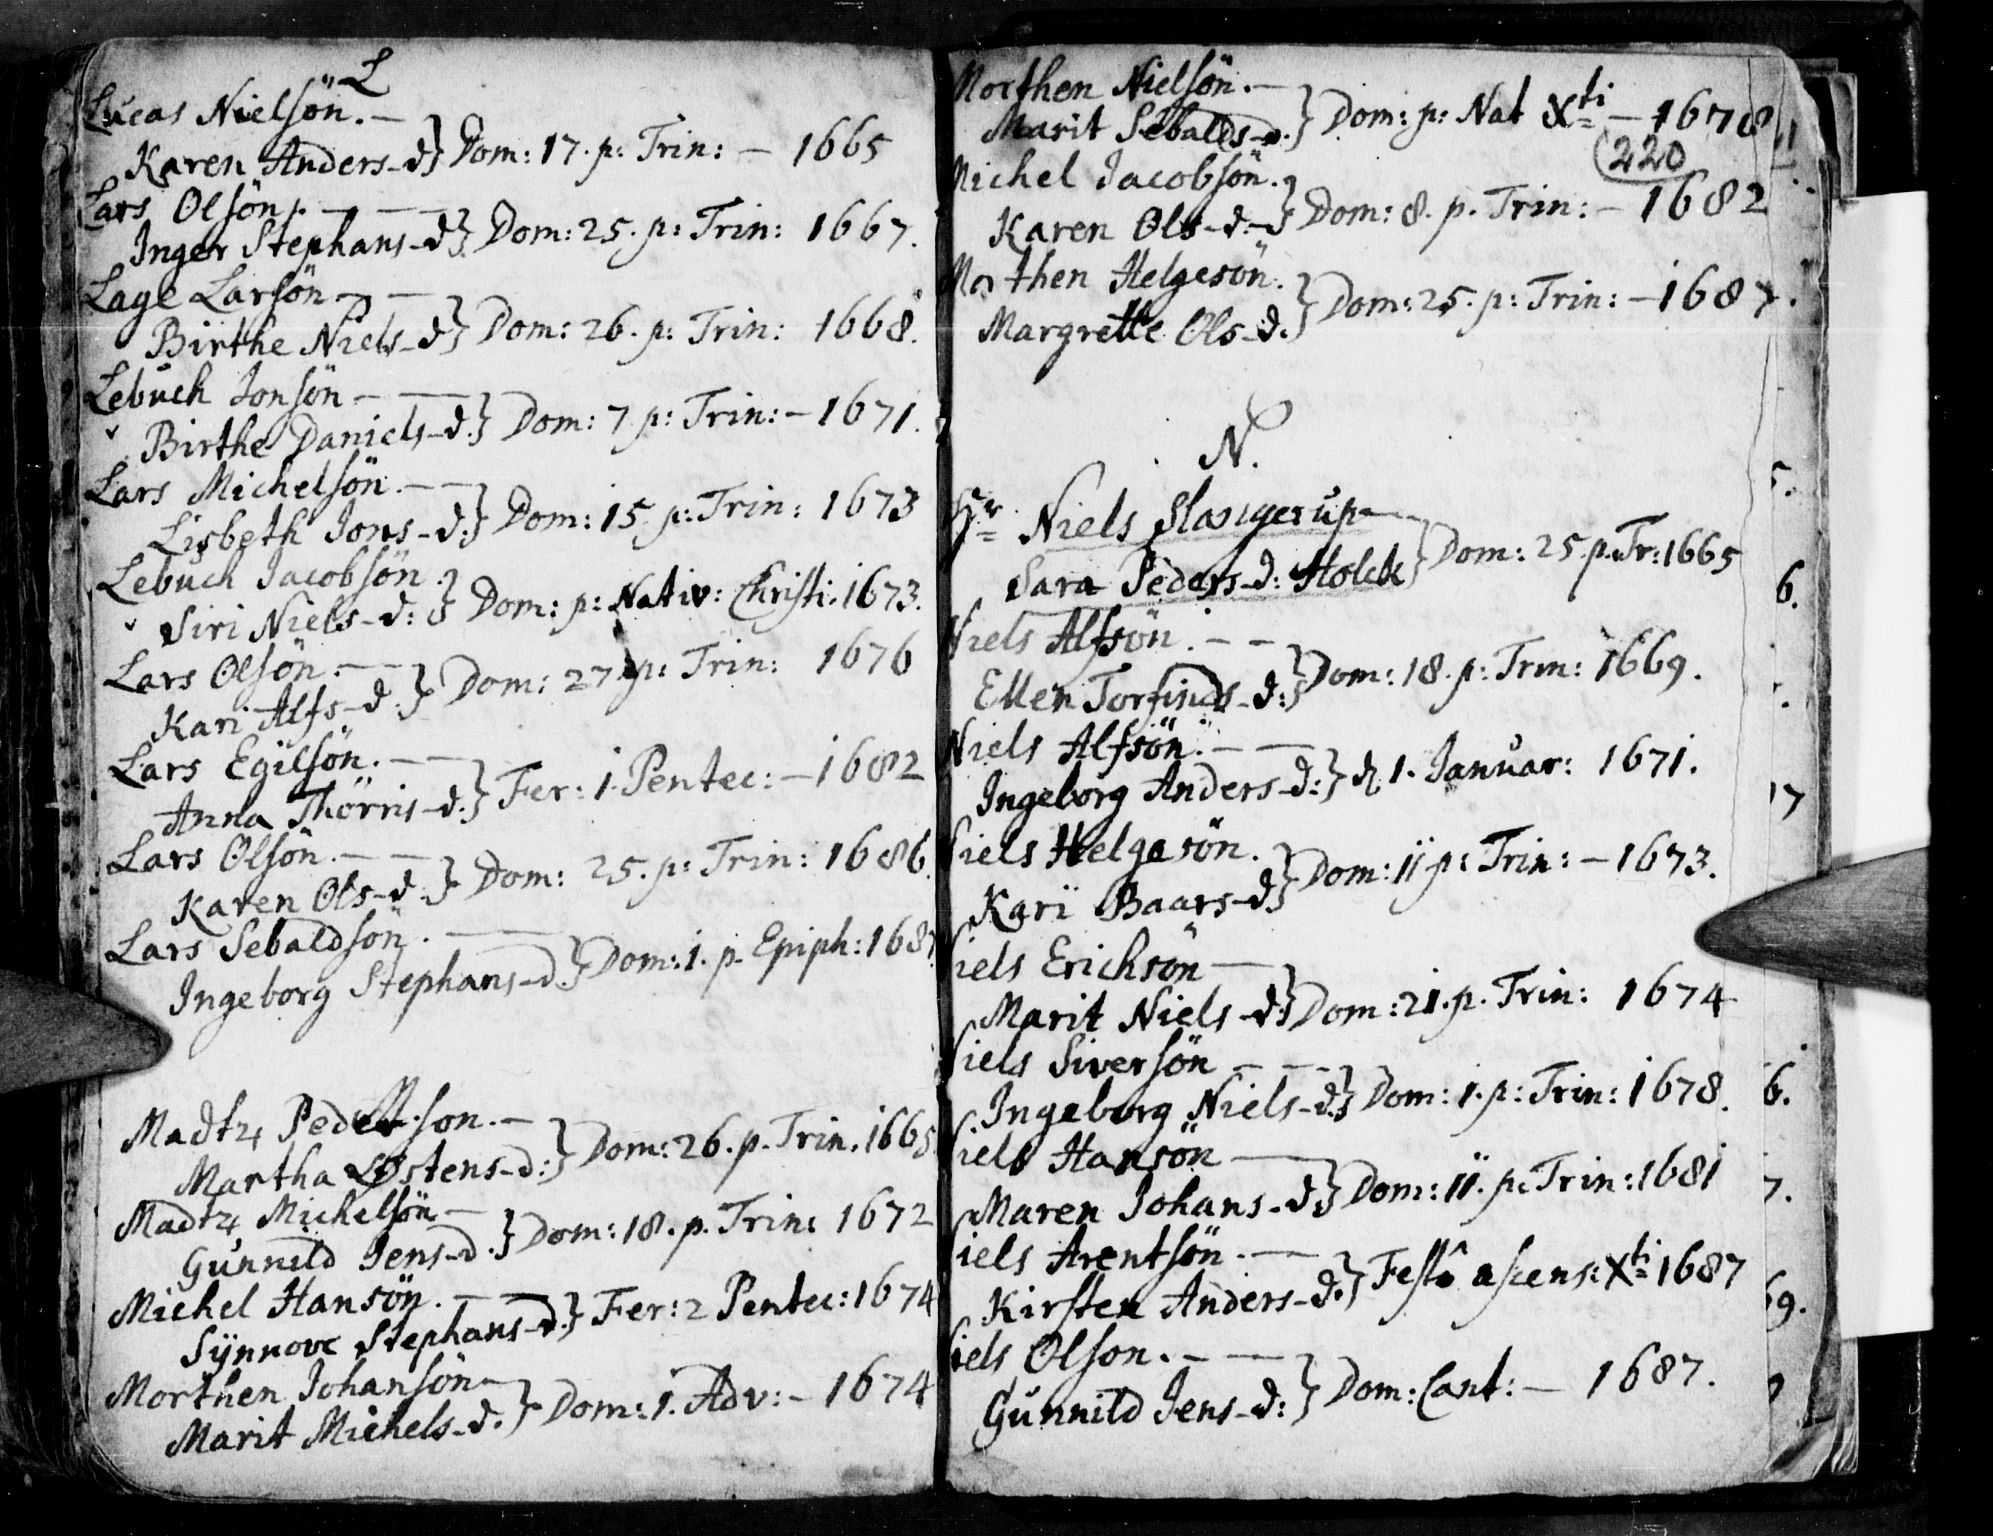 L
Lucas Nielsön. —
Karen Anders-d } Dom: 17. p: Trin: — 1665
Lars Olsön. — —
Inger Stephans-d } Dom: 25. p: Trin: 1667.
Lage Larsön — —
Birthe Niels-d } Dom: 26. p: Trin: 1668.
Lebuch Jonsön — —
Birthe Daniels-d. } Dom: 7. p: Trin: — 1671.
Lars Michelsön. — —
Lisbeth Jons-d. } Dom: 15. p: Trin: 1673
Lebuch Jacobsön.
Siri Niels-d: } Dom: p: Nativ: Christi. 1673.
Lars Olsön. — —
Kari Alfs-d. } Dom: 27. p: Trin: 1676
Lars Egilsön. — —
Anna Thörris-d. } Fer: 1. Pentec: — 1682
Lars Olsön. — —
Karen Ols-d. } Dom: 25. p: Trin: 1686.
Lars Sebaldsön. —
Ingeborg Stephans-d. } Dom: 1. p. Epiph: 168
M
Madtz Peder son. —
Martha Østens-d: } Dom: 26. p. Trin. 1665
Madtz Michelsön —
Gunnild Jens-d. } Dom: 18. p. Trin: 1672
Michel Hansön. — —
Synnove Stephans-d. } Fer: 2 Pentec: 1674
Morthen Johansön —
Marit Michels-d. } Dom: 1. Adv: — 1674
Morthen Nielsön. —
Marit Sebalds-d. } Dom: p: Nat Xti — 1678
220
Michel Jacobsön.
Karen Ols-d. } Dom: 8. p. Trin: — 1682
Morthen Helgesön.
Margrette Ols-d. } Dom: 25. p: Trin: — 1687.
N.
Hr Niels Slangerup —
Sara Peders-d: Holck } Dom: 25. p. Tr: 1665
Niels Alfsön. — —
Ellen Torfinds-d: } Dom: 18. p: Trin: 1669.
Niels Alfsön. — —
Ingeborg Anders-d: } d. 1. Januar: 1671.
Niels Helgesön.
Kari Baars-d } Dom: 11 p: Trin: — 1673.
Niels Erichsön —
Marit Niels-d. } Dom: 21. p. Trin: 1674
Niels Siversön — —
Ingeborg Niels-d. } Dom: 1. p: Trin: 1678.
Niels Hansön —
Maren Johans-d } Dom: 11. p: Trin: 1681
Niels Arentsön. —
Kirsten Anders-d. } Festô ascens: Xti 1687
Niels Olson. — —
Gunnild Jens-d: } Dom: Cant: — 1687.